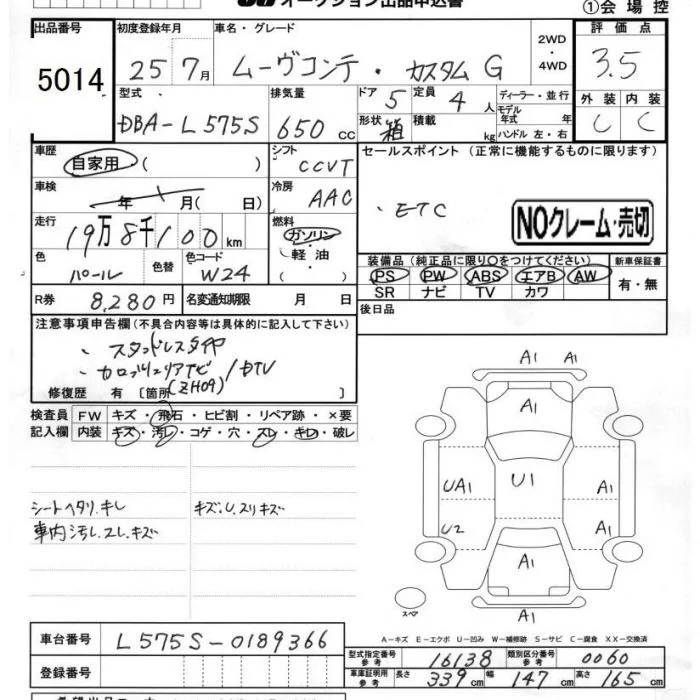 オークション出品申込書
①会場控
出品番号 初度登録年月 車名・グレード 2WD・4WD 評価点
5014 25 7月 ムーヴコンテ・カスタム G 3.5
型式 排気量 ドア 5 定員 4人 ディーラー・並行 外装 内装
DBA-L575S 650cc 形状 箱 積載 kg モデル年式 年式 ハンドル 左・右 C C
車歴 自家用 ( ) シフト CCVT セールスポイント (正常に機能するものに限ります)
車検 年 月( 日) 冷房 AAC ・ETC
NOクレーム・売切
走行 19万8千100km 燃料 ガソリン・軽油・( )
色 パール 色替 色コード W24
装備品(純正品に限り○をつけてください) 新車保証書
PS PW ABS エアB AW 有・無
SR ナビ TV カワ
R券 8,280円 名変通知期限 月 日 後日品
注意事項申告欄(不具合内容等は具体的に記入して下さい)
・スタッドレスタイヤ
・カロッツェリアナビ/DTV
(ZH09)
修復歴 有 [箇所 ]
検査員 FW キズ・飛石・ヒビ割・リペア跡・×要
記入欄 内装 キズ・汚レ・コゲ・穴・スレ・キレ・破レ
シートヘタリ、キレ キズ.U.スリキズ
車内汚レ.スレ.キズ
A1 A1
A1
UA1 U1 A1
U2 A1
A1
スペア A1
A-キズ E-エクボ U-凹み W-補修跡 S-サビ C-腐食 XX-交換済
車台番号 L575S-0189366
型式指定番号 参考 16138 類別区分番号 参考 0060
登録番号
車庫証明用 参考 長さ 339cm 幅 147cm 高さ 165cm